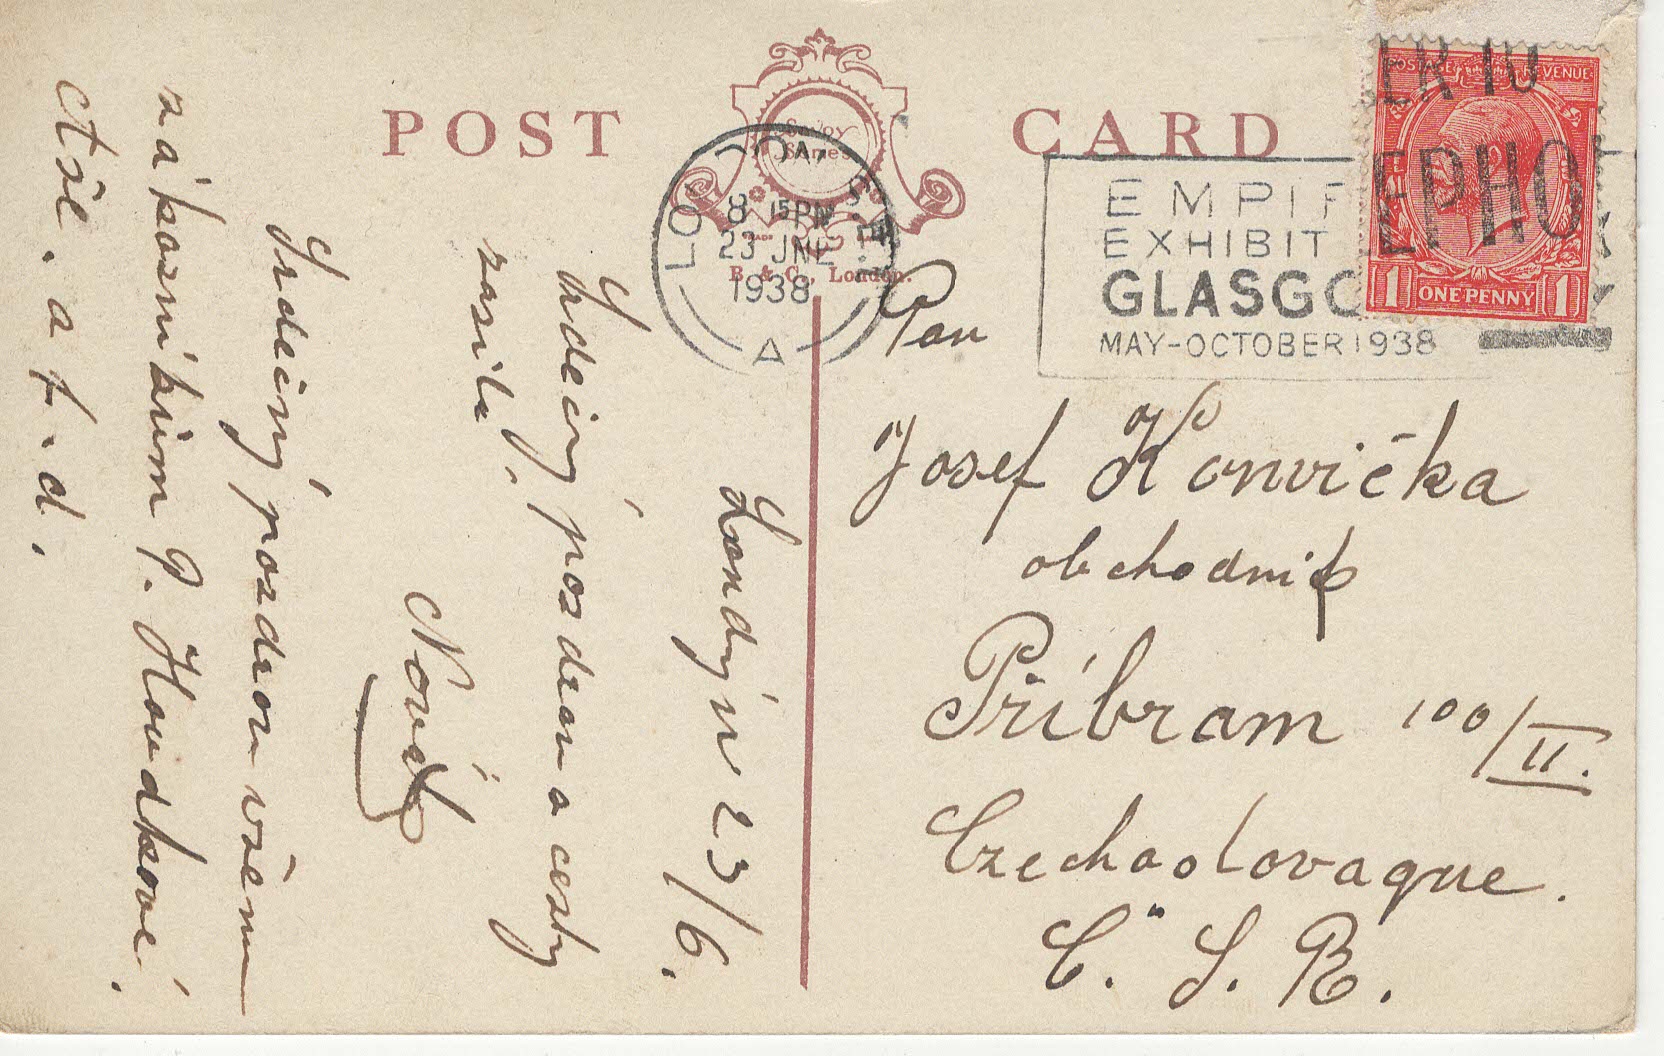 POST CARD
Savoy
Series
TRADE
B. & C., London.
LONDON S.E.
8 15PM
23 JNE
1938
A
EMPI
EXHIBIT
GLASGO
MAY-OCTOBER 1938
ER TO
EPHO
POSTAGE REVENUE
1 ONE PENNY 1
Pan
Josef Konvička
obchodník
Příbram 100/II.
Czechoslovaque.
Č. S. R.
Londýn 23/6.
Srdečný pozdrav a cesty
zasílá
Nový
Srdečný pozdrav všem
zákazníkům P. Houdkové,
ctše. a t. d.